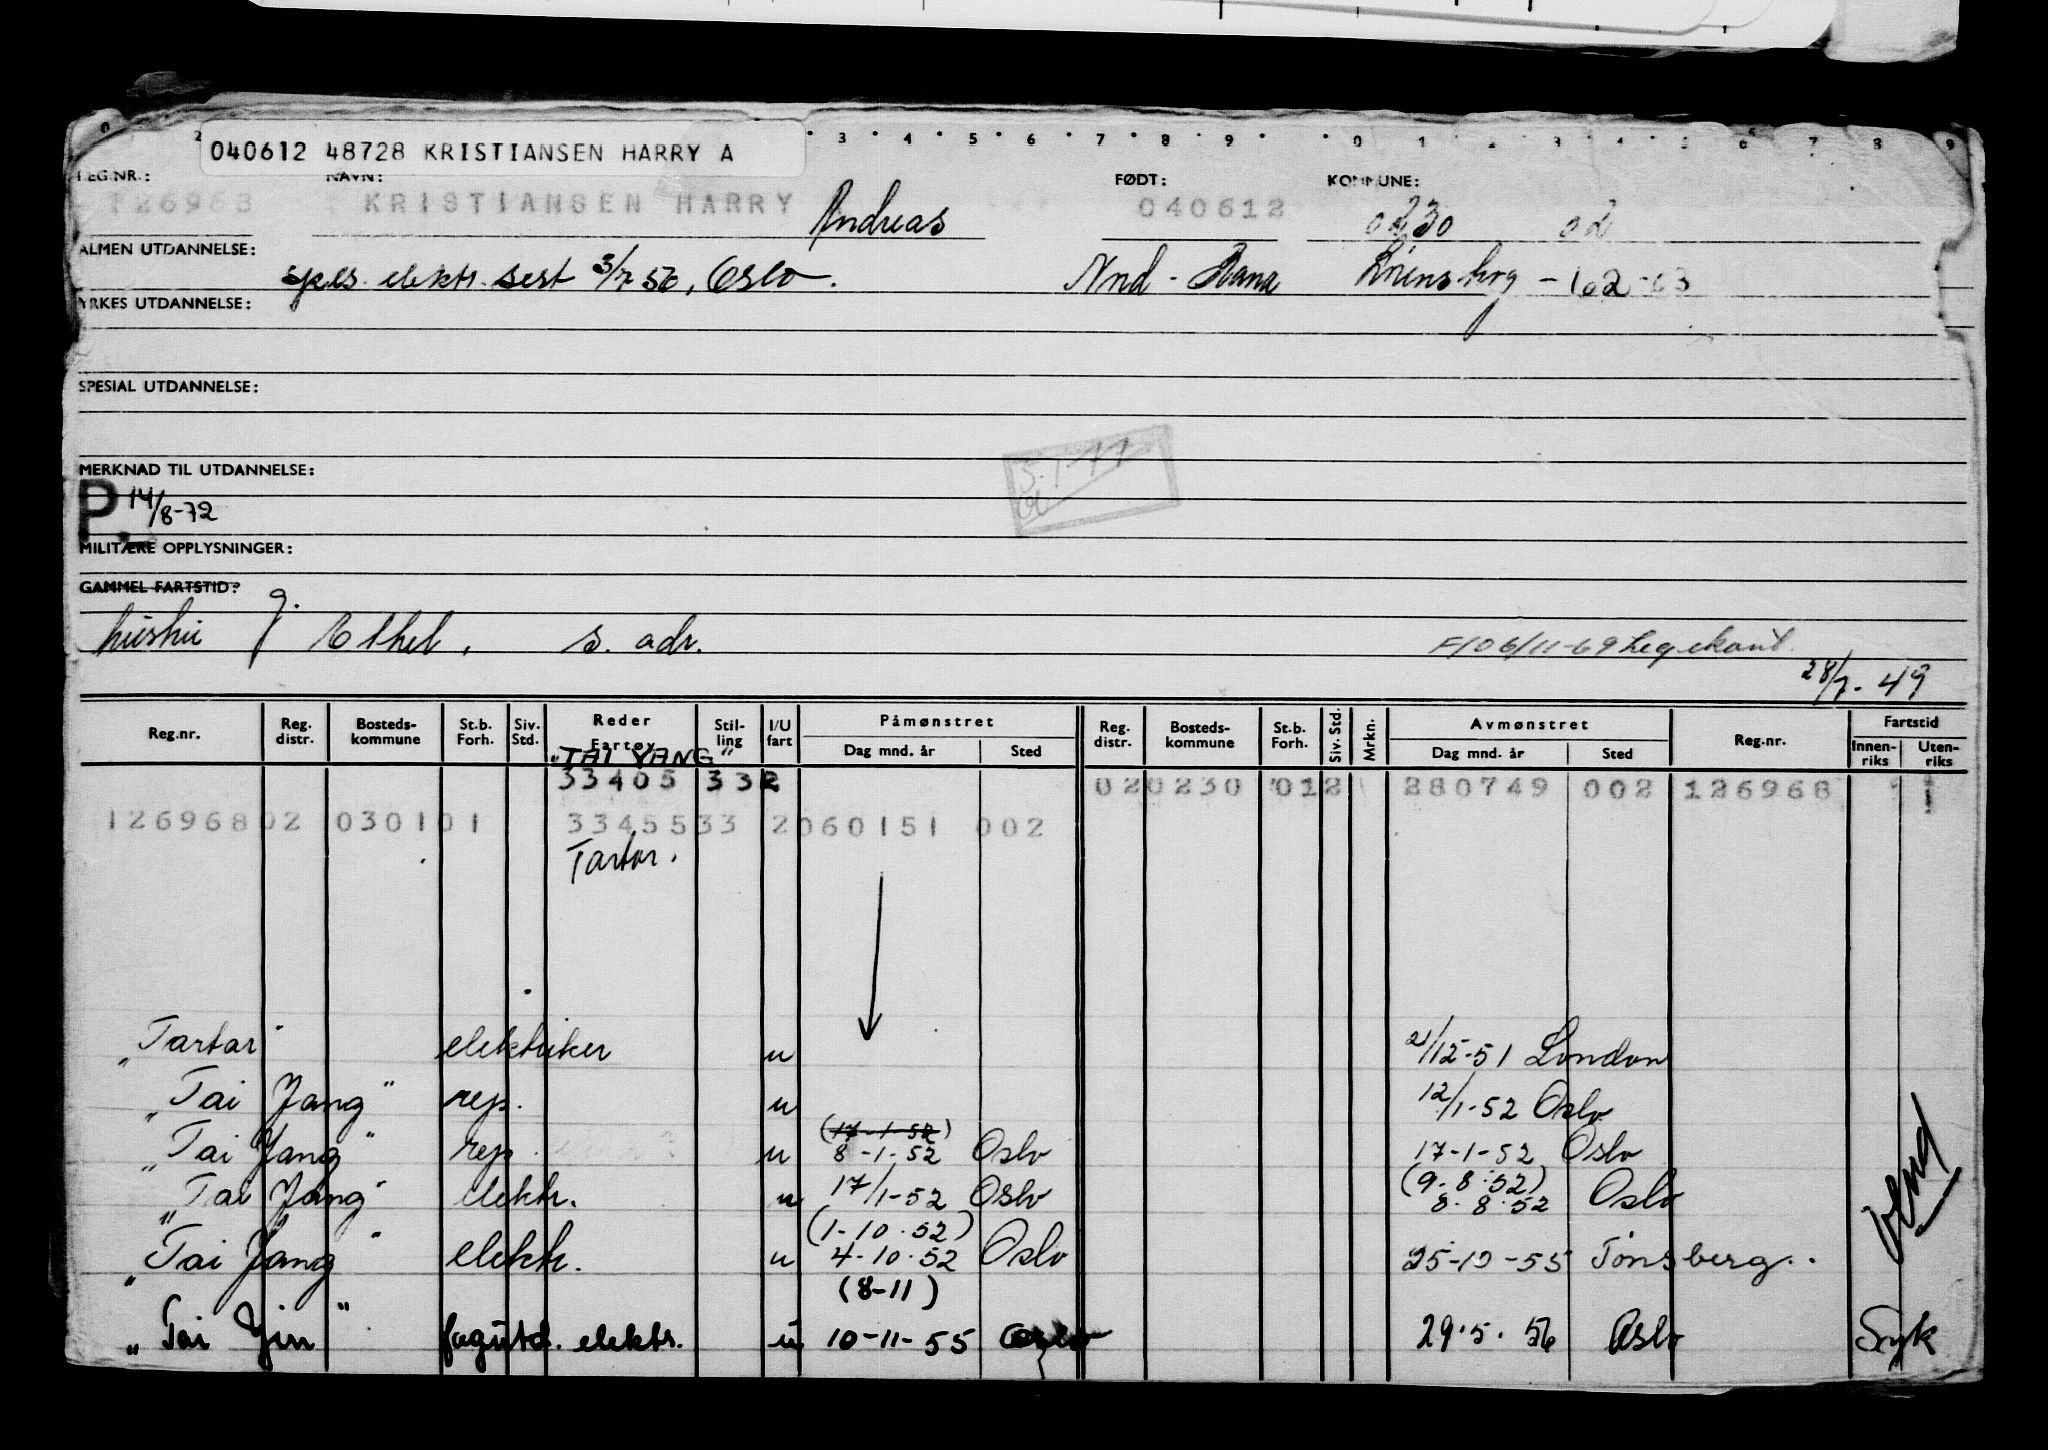 040612 48728 KRISTIANSEN HARRY A
REG.NR.: NAVN: FØDT: KOMMUNE:
126968 KRISTIANSEN HARRY Andreas 040612 0230 02
ALMEN UTDANNELSE:
elektr. sert 3/7 56, Oslo. Nnd - Rana
YRKES UTDANNELSE:
SPESIAL UTDANNELSE:
MERKNAD TIL UTDANNELSE:
P. 14/8-72
MILITÆRE OPPLYSNINGER:
GAMMEL FARTSTID:
hustru g. Ethel, s. adr.
28/7-49
Reg.nr. Reg. distr. Bosteds-kommune St.b. Forh. Siv. Std. Reder Fartøy Stil-ling I/U fart Påmønstret Dag mnd. år Sted Reg. distr. Bosteds-kommune St.b. Forh. Siv. Std. Mrkn. Avmønstret Dag mnd. år Sted Reg.nr. Fartstid Innen-riks Uten-riks
"TAI YANG"
33405 332 020230 012 280749 002 126968 1
126968 02 030101 3345533 2060151 002
Tartar.
"Tartar" elektriker u 21/12-51 London
"Tai Yang" rep. u 12/1-52 Oslo
(17-1-52)
"Tai Yang" rep. u 8-1-52 Oslo 17-1-52 Oslo
(9.8.52)
"Tai Yang" elektr. u 17/1-52 Oslo 8.8.52 Oslo
(1-10.52)
"Tai Yang" elektr. u 4-10.52 Oslo 25-10-55 Tønsberg.
(8-11)
"Tai Yin" fagutd. elektr. u 10-11-55 Oslo 29.5.56 Oslo Syk
Vend